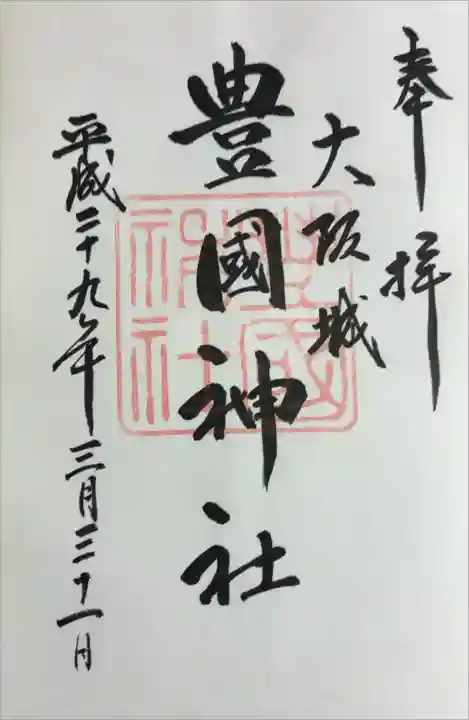 奉拝
大阪城
豊國神社
豊國神社
平成二十九年三月三十一日